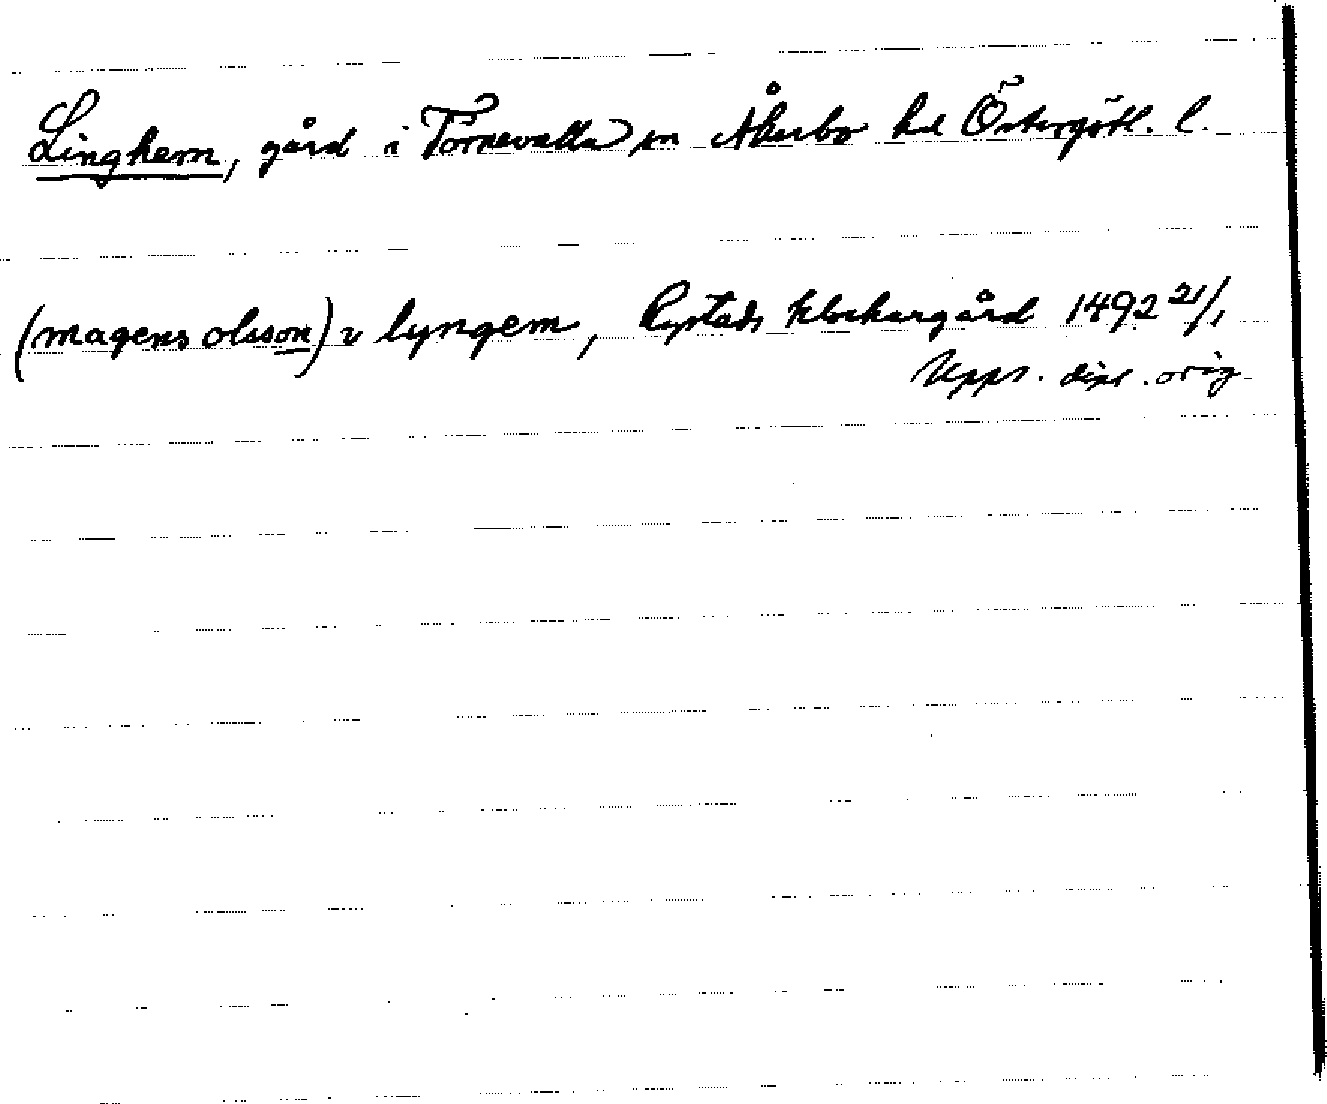 Linghem, gård i Törnevalla sn Åkerbo hd Östergötl. l.
(magens olsson) v lyngem, Rystads klockargård 1492 21/1
Upps. dipl. orig